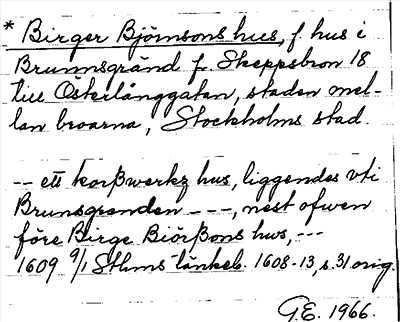 * Birger Björnsons hus, f. hus i
Brunnsgränd fr. Skeppsbron 18
till Österlånggatan, staden mel-
lan broarna, Stockholms stad.
-- ett korßwerkz hus, liggendes vti
Brunsgrenden ---, nest ofwen
före Birge Biörßons hws, ---
1609 9/1 Sthms tänkeb. 1608-13, s. 31 orig.
G.E. 1966.